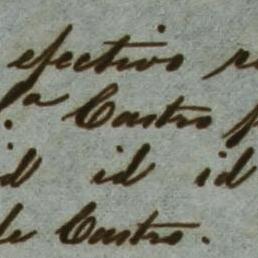 efectivo
Castro
id id id
de Castro.